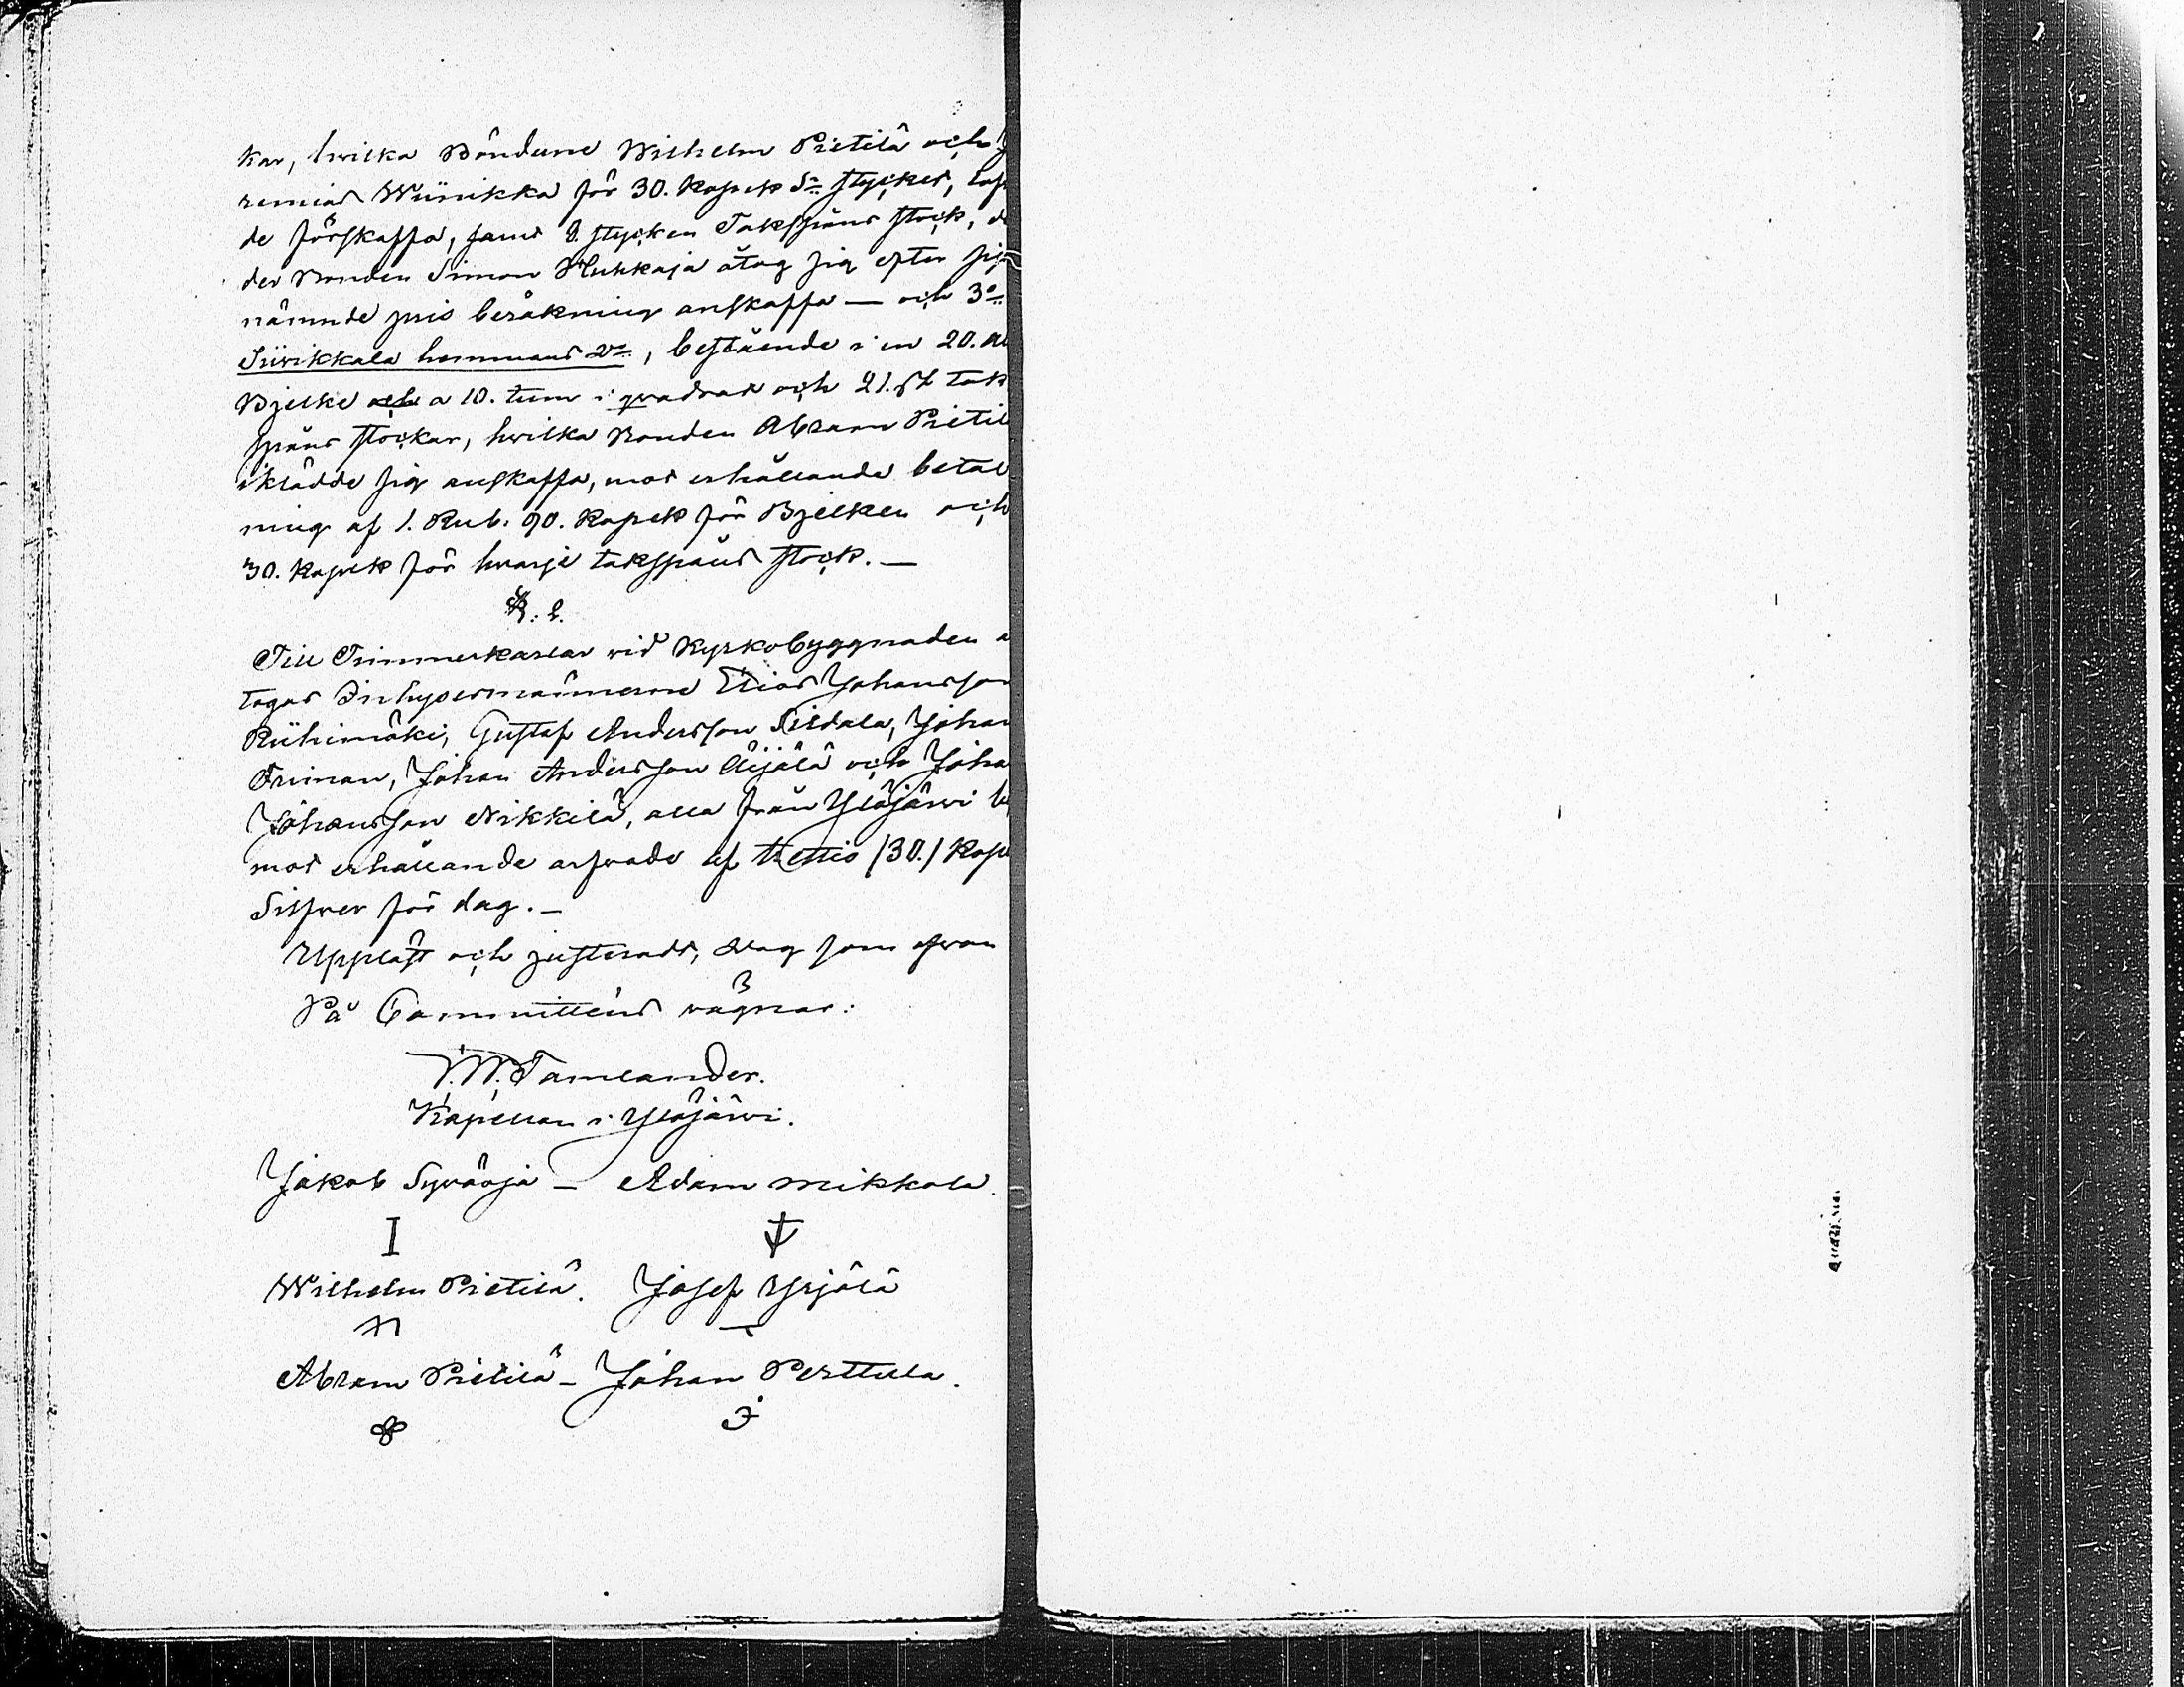 kar, hvilka Bönderne Wilhelm Pietilä och J
remias Wiinikka för 30. Kopek Sr stycket, lof
de förskaffa, samt 8. stycken Takspåns stock, 
der Bonden Simon Huhkaja åtog sig efter sist
nämnde pris beräkning anskaffa — och 3o
Siivikkala hemmans , bestående i en 20. al
Bjelke a 10. tum i qvadrat och 21. st tak
spåns stockar, hvilka Bonden Abram Pietil
iklädde sig anskaffa, mot erhållande betal
ning af 1. Rub. 90. Kopek för Bjelken och
30. Kopek för hvarje takspåns stock. —
§. 2.
Till Timmerkarlar vid Kyrkobyggnaden a
togos Inhysesmännerne Elias Johansson
Riihimäki, Gustaf Andersson Sildala, Johan
Friman, Johan Andersson Äijälä och Joha
Johansson Nikkilä, alla från Ylöjärvi 
mot erhållande arfvode af trettio /30./ Kope
Silfver för dag. —
Uppläst och justeradt, dag som ofvan
På Committéns vägnar:
J. W. Tamlander.
Kapellan i Ylöjärvi.
Jakob Syväoja — Adam Mikkola.
Wilhelm Pietilä. Josef Yrjölä
Abram Pietilä — Johan Perttula.